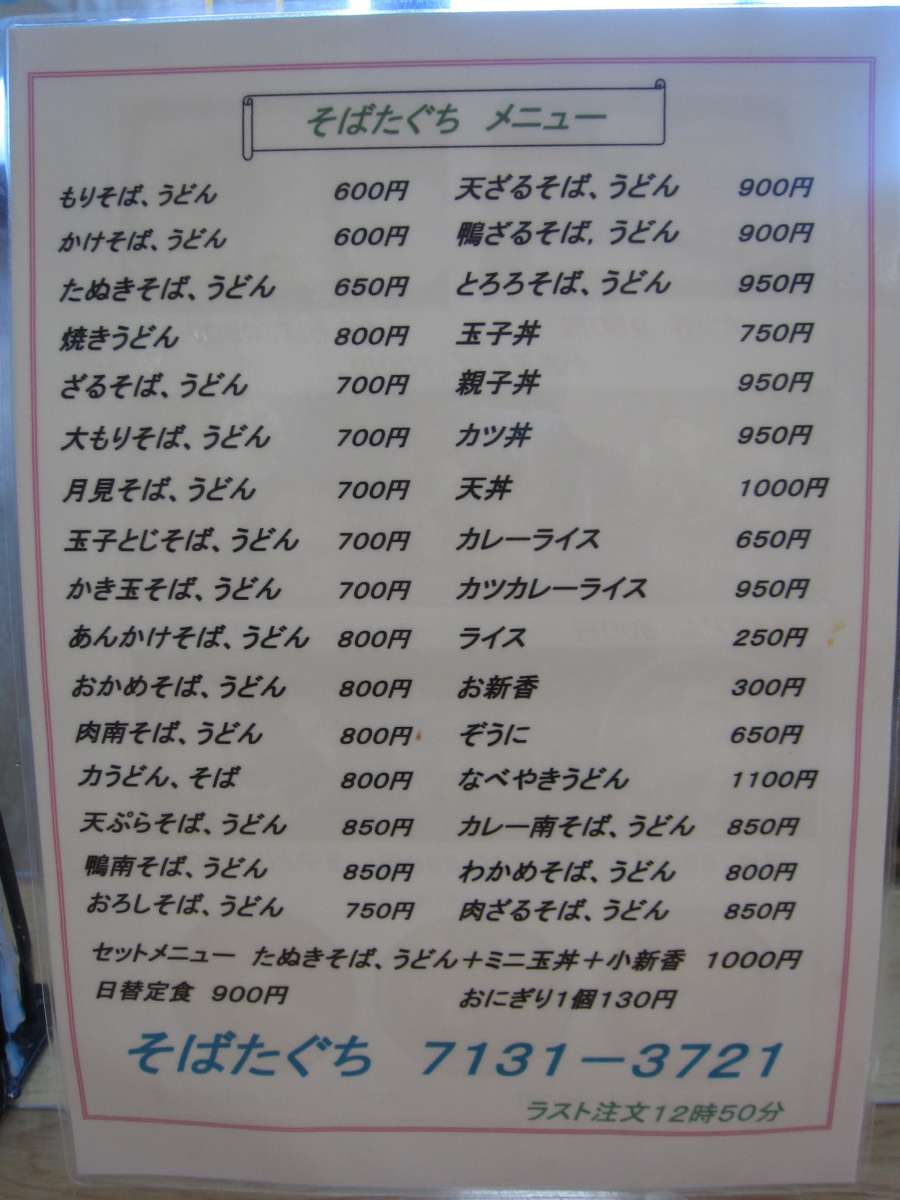 そばたぐち メニュー
もりそば、うどん 600円 天ざるそば、うどん 900円
かけそば、うどん 600円 鴨ざるそば，うどん 900円
たぬきそば、うどん 650円 とろろそば、うどん 950円
焼きうどん 800円 玉子丼 750円
ざるそば、うどん 700円 親子丼 950円
大もりそば、うどん 700円 カツ丼 950円
月見そば、うどん 700円 天丼 1000円
玉子とじそば、うどん 700円 カレーライス 650円
かき玉そば、うどん 700円 カツカレーライス 950円
あんかけそば、うどん 800円 ライス 250円
おかめそば、うどん 800円 お新香 300円
肉南そば、うどん 800円 ぞうに 650円
力うどん、そば 800円 なべやきうどん 1100円
天ぷらそば、うどん 850円 カレー南そば、うどん 850円
鴨南そば、うどん 850円 わかめそば、うどん 800円
おろしそば、うどん 750円 肉ざるそば、うどん 850円
セットメニュー たぬきそば、うどん＋ミニ玉丼＋小新香 1000円
日替定食 900円 おにぎり1個130円
そばたぐち 7131－3721
ラスト注文12時50分